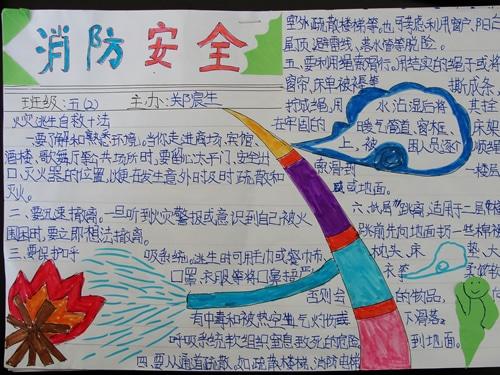 消防安全
班级:五(2) 主办:郑震生
火灾逃生自救十法
一、要了解和熟悉环境。当你走进商场、宾馆、
酒楼、歌舞厅等公共场所时,要留心太平门、安全出
口、灭火器的位置,以便在发生意外时及时疏散和
灭火。
二、要迅速撤离。一旦听到火灾警报或意识到自己被火
围困时,要立即想法撤离。
三、要保护呼吸系统。逃生时可用毛巾或餐巾布、
口罩、衣服等将口鼻捂严
否则会
有中毒和被热空气灼伤
呼吸系统软组织窒息致死的危险
四、要从通道疏散。如疏散楼梯、消防电梯
室外疏散楼梯等,也可考虑利用窗户、阳台
屋顶、避雷线、落水管等脱险。
五、要利用绳索滑行。用结实的绳子或将
窗帘、床单被褥等 撕成条,
拧成绳,用 水沾湿后将 其拴
在牢固的 暖气管道、窗框、 床
上,被 困人员逐个 顺绳
索滑到 一楼层
或地面。
六、 跳离,适用于二层
跳前先向地面扔一些棉被
枕头、床 垫、大
衣等 柔软
的物品,
下滑落
到地面。